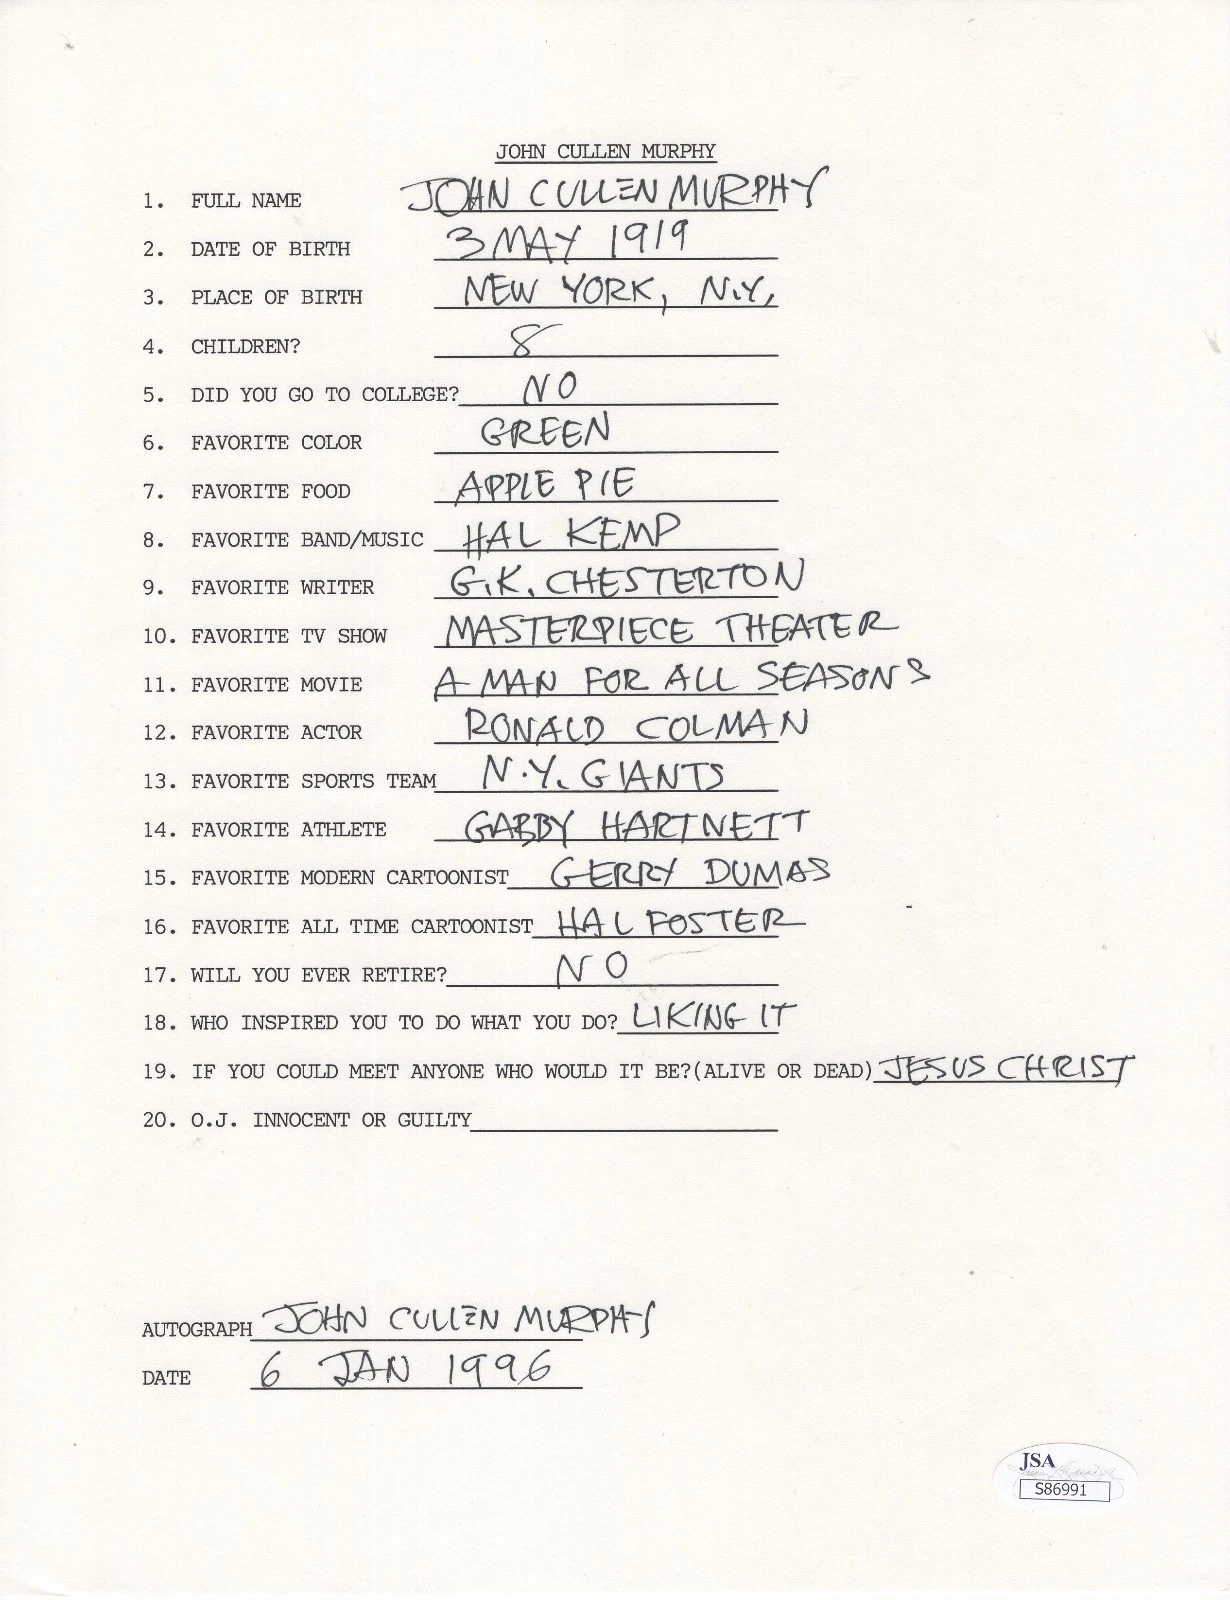 JOHN CULLEN MURPHY
1. FULL NAME JOHN CULLEN MURPHY
2. DATE OF BIRTH 3 MAY 1919
3. PLACE OF BIRTH NEW YORK, N.Y.
4. CHILDREN? 8
5. DID YOU GO TO COLLEGE? NO
6. FAVORITE COLOR GREEN
7. FAVORITE FOOD APPLE PIE
8. FAVORITE BAND/MUSIC HAL KEMP
9. FAVORITE WRITER G.K. CHESTERTON
10. FAVORITE TV SHOW MASTERPIECE THEATER
11. FAVORITE MOVIE A MAN FOR ALL SEASONS
12. FAVORITE ACTOR RONALD COLMAN
13. FAVORITE SPORTS TEAM N.Y. GIANTS
14. FAVORITE ATHLETE GABBY HARTNETT
15. FAVORITE MODERN CARTOONIST GERRY DUMAS
16. FAVORITE ALL TIME CARTOONIST HAL FOSTER
17. WILL YOU EVER RETIRE? NO
18. WHO INSPIRED YOU TO DO WHAT YOU DO? LIKING IT
19. IF YOU COULD MEET ANYONE WHO WOULD IT BE?(ALIVE OR DEAD) JESUS CHRIST
20. O.J. INNOCENT OR GUILTY
AUTOGRAPH JOHN CULLEN MURPHY
DATE 6 JAN 1996
JSA
S86991